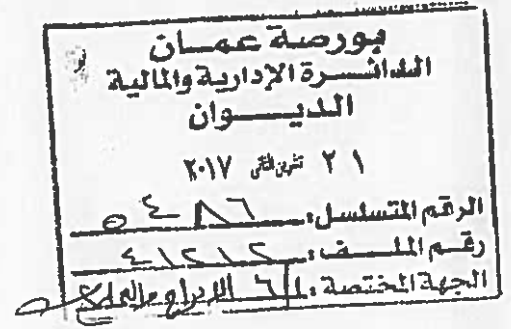 بورصة عمان
الدائرة الإدارية والمالية
الديوان
٢١ تشرين الثاني ٢٠١٧
الرقم المتسلسل: ٥٤٨٦
رقم الملف: ٤١٢١٢
الجهة المختصة: الإدراج